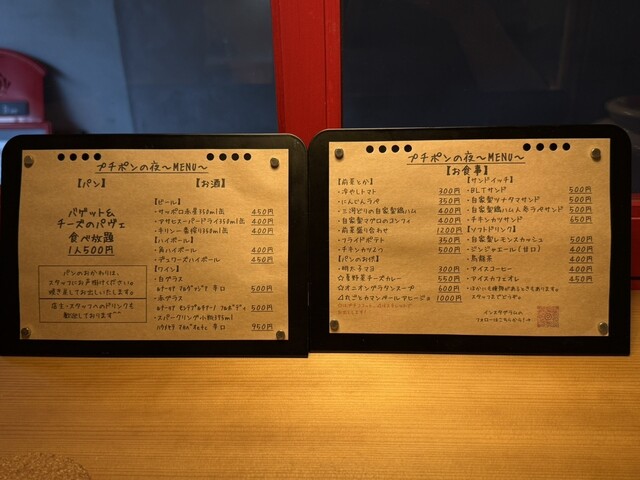 プチポンの夜〜MENU〜
【パン】
バゲット&
チーズのパヴェ
食べ放題
1人500円
パンのおかわりは、
スタッフにお声掛けください。
焼き直してお出しいたします。
店主・スタッフへのドリンクも
歓迎しております^^
【お酒】
【ビール】
・サッポロ赤星350ml缶 450円
・アサヒスーパードライ350ml缶 400円
・キリン一番搾り350ml缶 400円
【ハイボール】
・角ハイボール 400円
・デュワーズハイボール 450円
【ワイン】
・白グラス
辛口 500円
・赤グラス
フルボディ 500円
・スパークリング小瓶
辛口 950円
プチポンの夜〜MENU〜
【お食事】
【前菜とか】
・冷やしトマト 300円
・にんじんラペ 350円
・三河どりの自家製鶏ハム 400円
・自家製マグロのコンフィ 400円
・前菜盛り合わせ 1200円
・フライドポテト 350円
・チキンカツ2つ 500円
【パンのお供】
・明太子マヨ 300円
☆夏野菜チーズカレー 550円
☆オニオングラタンスープ 600円
☆たことカマンベールアヒージョ 1000円
【サンドイッチ】
・BLTサンド 500円
・自家製ツナタマサンド 500円
・自家製鶏ハム人参ラペサンド 500円
・チキンカツサンド 650円
【ソフトドリンク】
・自家製レモンスカッシュ 500円
・ジンジャエール(甘口) 400円
・烏龍茶 400円
・アイスコーヒー 400円
・アイスカフェオレ 450円
・ほかにも種類があるときもあります。
スタッフまでどうぞ。
インスタグラムの
フォローはこちらから!→